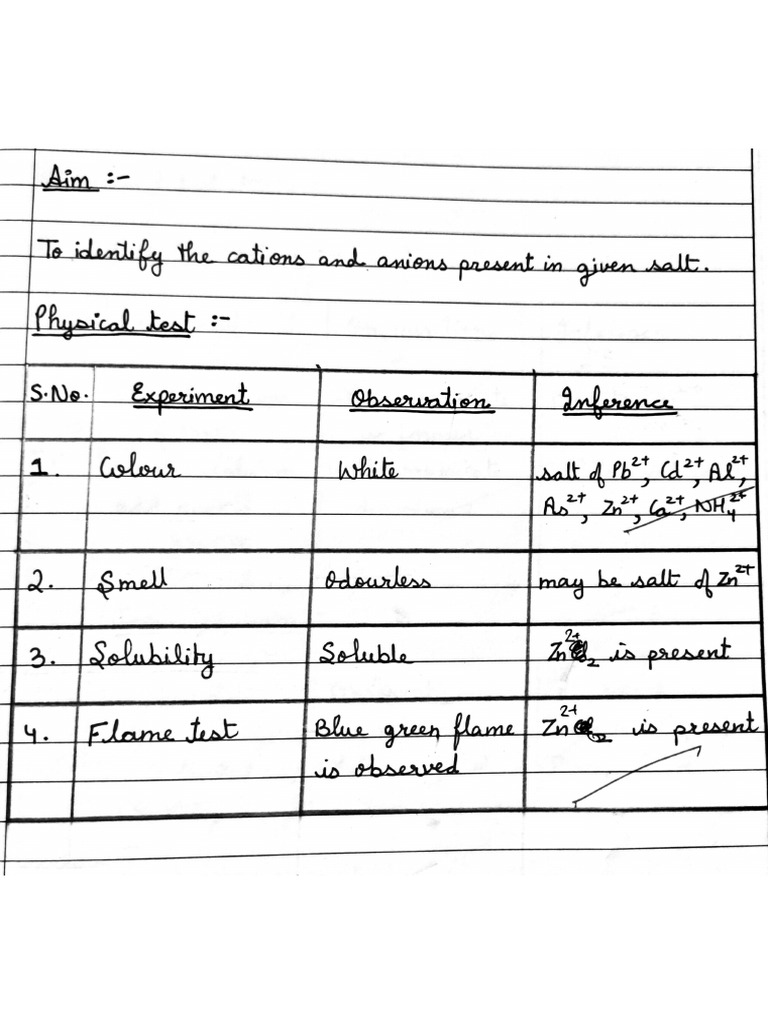 Aim :-
To identify the cations and anions present in given salt.
Physical test :-
S.No. Experiment Observation Inference
1. Colour White salt of Pb²⁺, Cd²⁺, Al²⁺,
As²⁺, Zn²⁺, Ca²⁺, NH₄²⁺
2. Smell Odourless may be salt of Zn²⁺
3. Solubility Soluble Zn²⁺ ₂ is present
4. Flame test Blue green flame Zn²⁺ ₂ is present
is observed